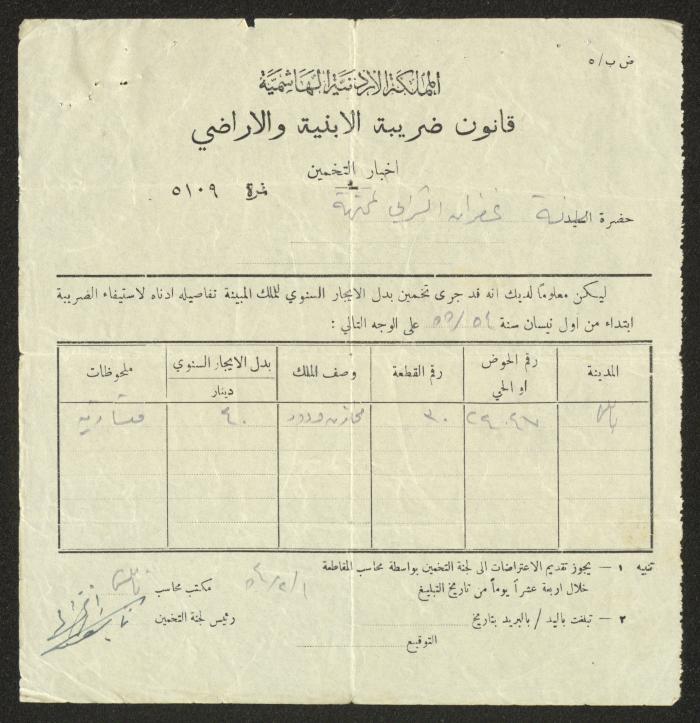 ض ب/٥
المملكة الاردنية الهاشمية
قانون ضريبة الابنية والاراضي
اخبار التخمين
نمرة ٥١٠٩
حضرة السيد
ليكن معلوماً لديك انه قد جرى تخمين بدل الايجار السنوي للملك المبينة تفاصيله ادناه لاستيفاء الضريبة
ابتداء من اول نيسان سنة على الوجه التالي :
المدينة رقم الحوض او الحي رقم القطعة وصف الملك بدل الايجار السنوي دينار ملحوظات
نابلس ٣٠ ٤٠
تنبيه ١ — يجوز تقديم الاعتراضات الى لجنة التخمين بواسطة محاسب المقاطعة
خلال اربعة عشر يوماً من تاريخ التبليغ
٢ — تبلغت باليد / بالبريد بتاريخ
التوقيع
مكتب محاسب نابلس
رئيس لجنة التخمين